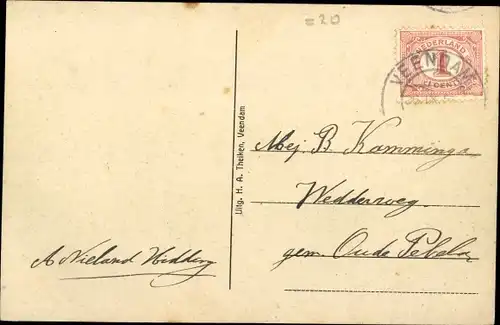 = 20
NEDERLAND
1
CENT
VEENDAM
Uitg. H. A. Theiken, Veendam
Mej. B. Kamminga
Wedderweg
gem. Oude Pekela
A Nieland Hidding